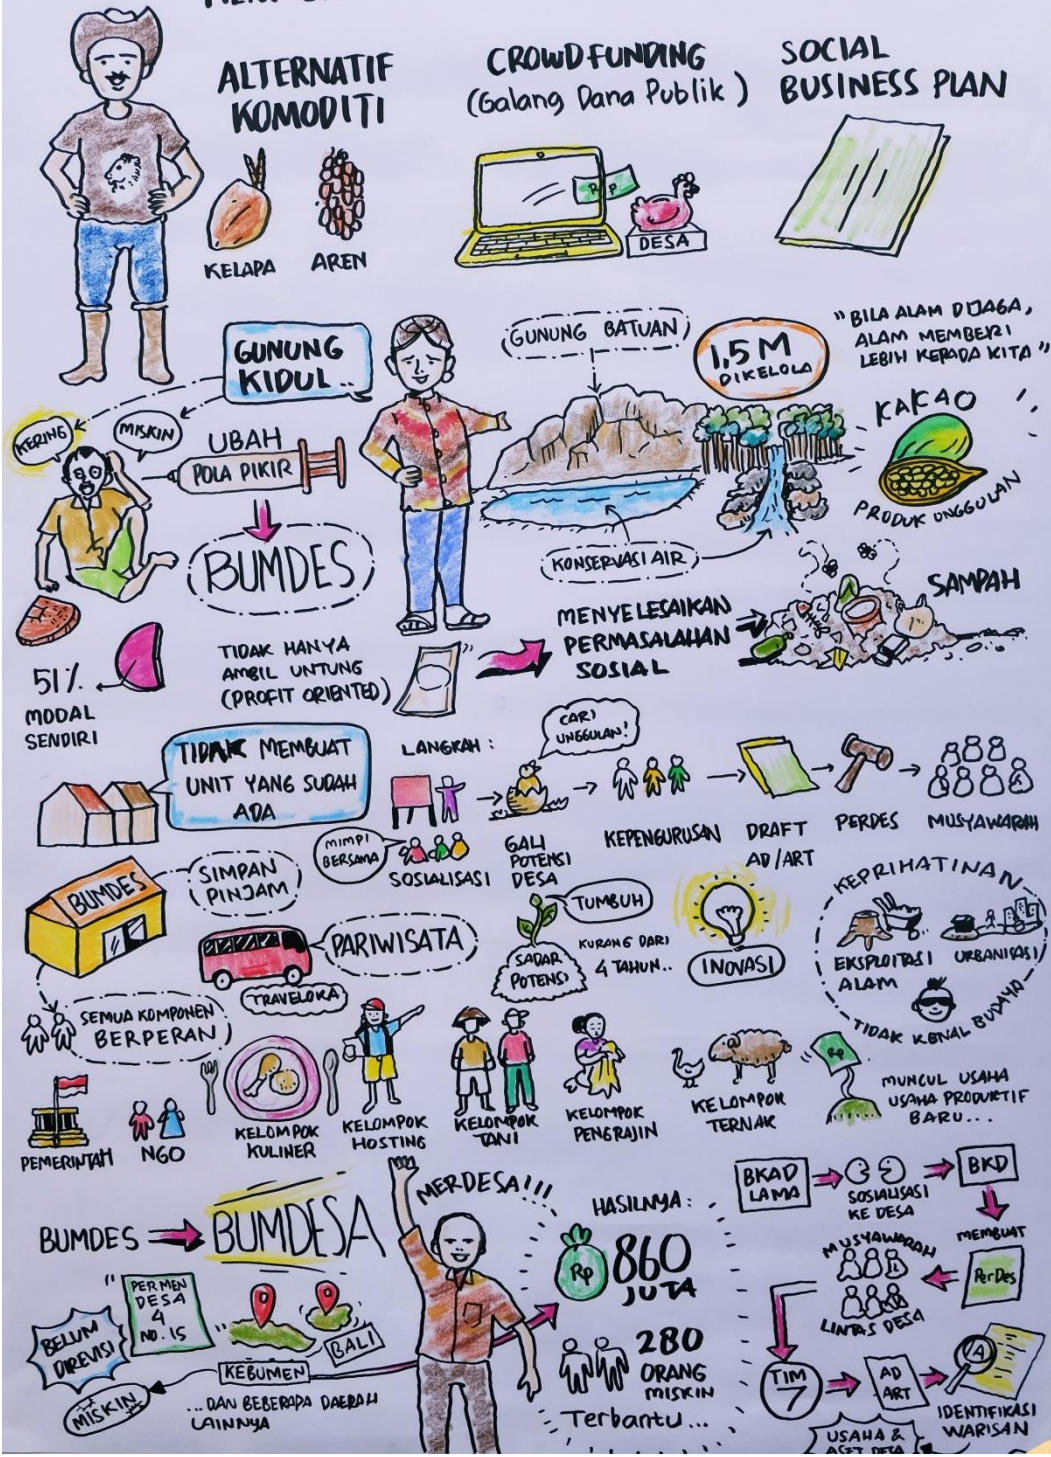 ALTERNATIF
KOMODITI
KELAPA
AREN
CROWDFUNDING
(Galang Dana Publik)
Rp
DESA
SOCIAL
BUSINESS PLAN
GUNUNG
KIDUL..
KERING
MISKIN
UBAH
POLA PIKIR
BUMDES
GUNUNG BATUAN
1,5 M
DIKELOLA
"BILA ALAM DIJAGA,
ALAM MEMBERI
LEBIH KEPADA KITA"
KAKAO
PRODUK UNGGULAN
KONSERVASI AIR
51%
MODAL
SENDIRI
TIDAK HANYA
AMBIL UNTUNG
(PROFIT ORIENTED)
MENYELESAIKAN
PERMASALAHAN
SOSIAL
SAMPAH
TIDAK MEMBUAT
UNIT YANG SUDAH
ADA
LANGKAH :
MIMPI
BERSAMA
SOSIALISASI
CARI
UNGGULAN!
GALI
POTENSI
DESA
KEPENGURUSAN
DRAFT
AD/ART
PERDES
MUSYAWARAH
BUMDES
SIMPAN
PINJAM
PARIWISATA
TRAVELOKA
SEMUA KOMPONEN
BERPERAN
TUMBUH
SADAR
POTENSI
KURANG DARI
4 TAHUN..
INOVASI
KEPRIHATINAN
EKSPLOITASI
ALAM
URBANISASI
TIDAK KENAL BUDAYA
PEMERINTAH
NGO
KELOMPOK
KULINER
KELOMPOK
HOSTING
KELOMPOK
TANI
KELOMPOK
PENGRAJIN
KELOMPOK
TERNAK
Rp
MUNCUL USAHA
USAHA PRODUKTIF
BARU...
BUMDES
BUMDESA
MERDESA!!!
"PERMEN
DESA
4
NO. 15"
BELUM
DIREVISI
MISKIN
KEBUMEN
BALI
...DAN BEBERAPA DAERAH
LAINNYA
HASILNYA :
Rp
860
JUTA
280
ORANG
MISKIN
Terbantu...
BKAD
LAMA
SOSIALISASI
KE DESA
BKD
MEMBUAT
PerDes
MUSYAWARAH
LINTAS DESA
TIM
7
AD
ART
IDENTIFIKASI
WARISAN
USAHA &
ASET DESA